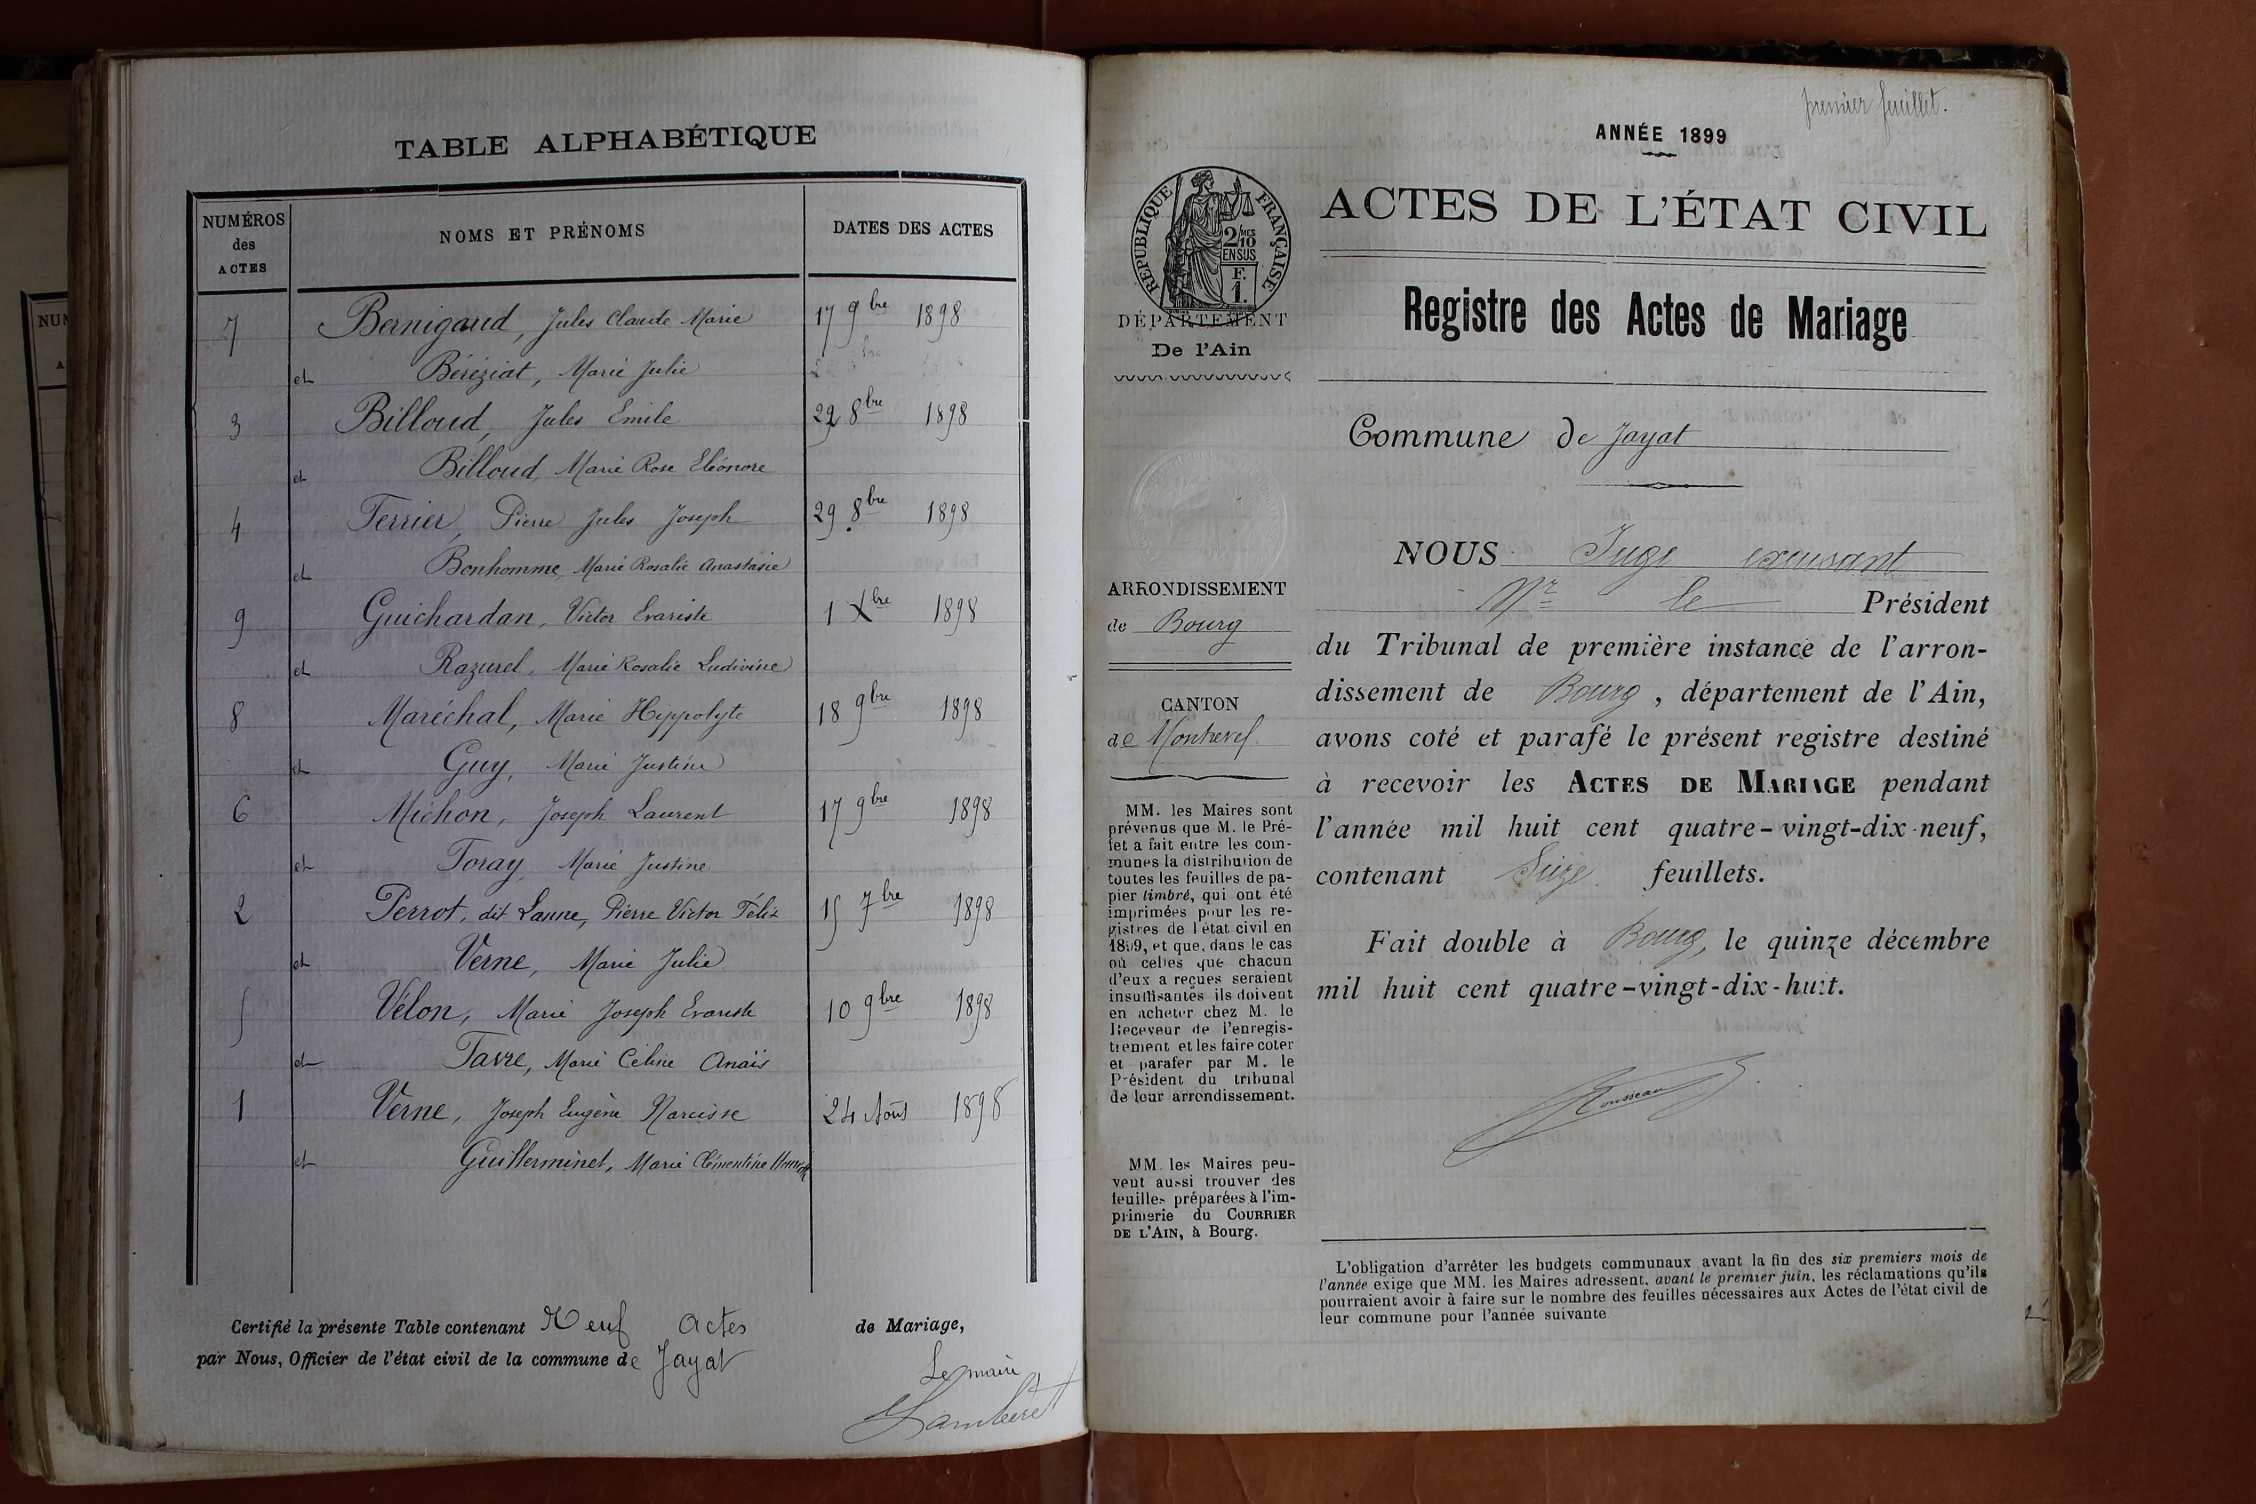 TABLE ALPHABÉTIQUE
NUMÉROS des ACTES
NOMS ET PRÉNOMS
DATES DES ACTES
7 Bernigaud, Jules Claude Marie 17 9bre 1898
et Béréziat, Marie Julie
3 Billoud, Jules Emile 29 8bre 1898
et Billoud, Marie Rose Eléonore
4 Terrier, Pierre Jules Joseph 29 8bre 1898
et Bonhomme, Marie Rosalie Anastasie
9 Guichardan, Victor Evariste 1 Xbre 1898
et Razurel, Marie Rosalie Ludivine
8 Maréchal, Marie Hippolyte 18 9bre 1898
et Guy, Marie Justine
6 Michon, Joseph Laurent 17 9bre 1898
et Toray, Marie Justine
2 Perrot, dit Lanne, Pierre Victor Félix 15 7bre 1898
et Verne, Marie Julie
5 Vélon, Marie Joseph Evariste 10 9bre 1898
et Favre, Marie Céline Anaïs
1 Verne, Joseph Eugène Narcisse 24 Août 1898
et Guillerminet, Marie Clémentine
Certifié la présente Table contenant Neuf Actes de Mariage,
par Nous, Officier de l'état civil de la commune de Jayat
Le maire
Lamberet
NUM
A
premier feuillet.
ANNÉE 1899
RÉPUBLIQUE FRANÇAISE
2/10MES
EN SUS
F.
1.
DÉPARTEMENT
De l'Ain
ACTES DE L'ÉTAT CIVIL
Registre des Actes de Mariage
Commune de Jayat
ARRONDISSEMENT
de Bourg
CANTON
de Montrevel
MM. les Maires sont
prévenus que M. le Pré-
fet a fait entre les com-
munes la distribution de
toutes les feuilles de pa-
pier timbré, qui ont été
imprimées pour les re-
gistres de l'état civil en
1899, et que, dans le cas
où celles que chacun
d'eux a reçues seraient
insuffisantes ils doivent
en acheter chez M. le
Receveur de l'enregis-
trement et les faire coter
et parafer par M. le
Président du tribunal
de leur arrondissement.
MM. les Maires peu-
vent aussi trouver des
feuilles préparées à l'im-
primerie du COURRIER
DE L'AIN, à Bourg.
NOUS Juge excusant
Mr le Président
du Tribunal de première instance de l'arron-
dissement de Bourg, département de l'Ain,
avons coté et parafé le présent registre destiné
à recevoir les ACTES DE MARIAGE pendant
l'année mil huit cent quatre-vingt-dix-neuf,
contenant Seize feuillets.
Fait double à Bourg, le quinze décembre
mil huit cent quatre-vingt-dix-huit.
Rousseau
L'obligation d'arrêter les budgets communaux avant la fin des six premiers mois de
l'année exige que MM. les Maires adressent, avant le premier juin, les réclamations qu'ils
pourraient avoir à faire sur le nombre des feuilles nécessaires aux Actes de l'état civil de
leur commune pour l'année suivante